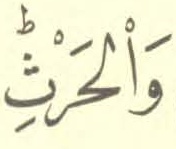 وَالْحَرْثِؕ